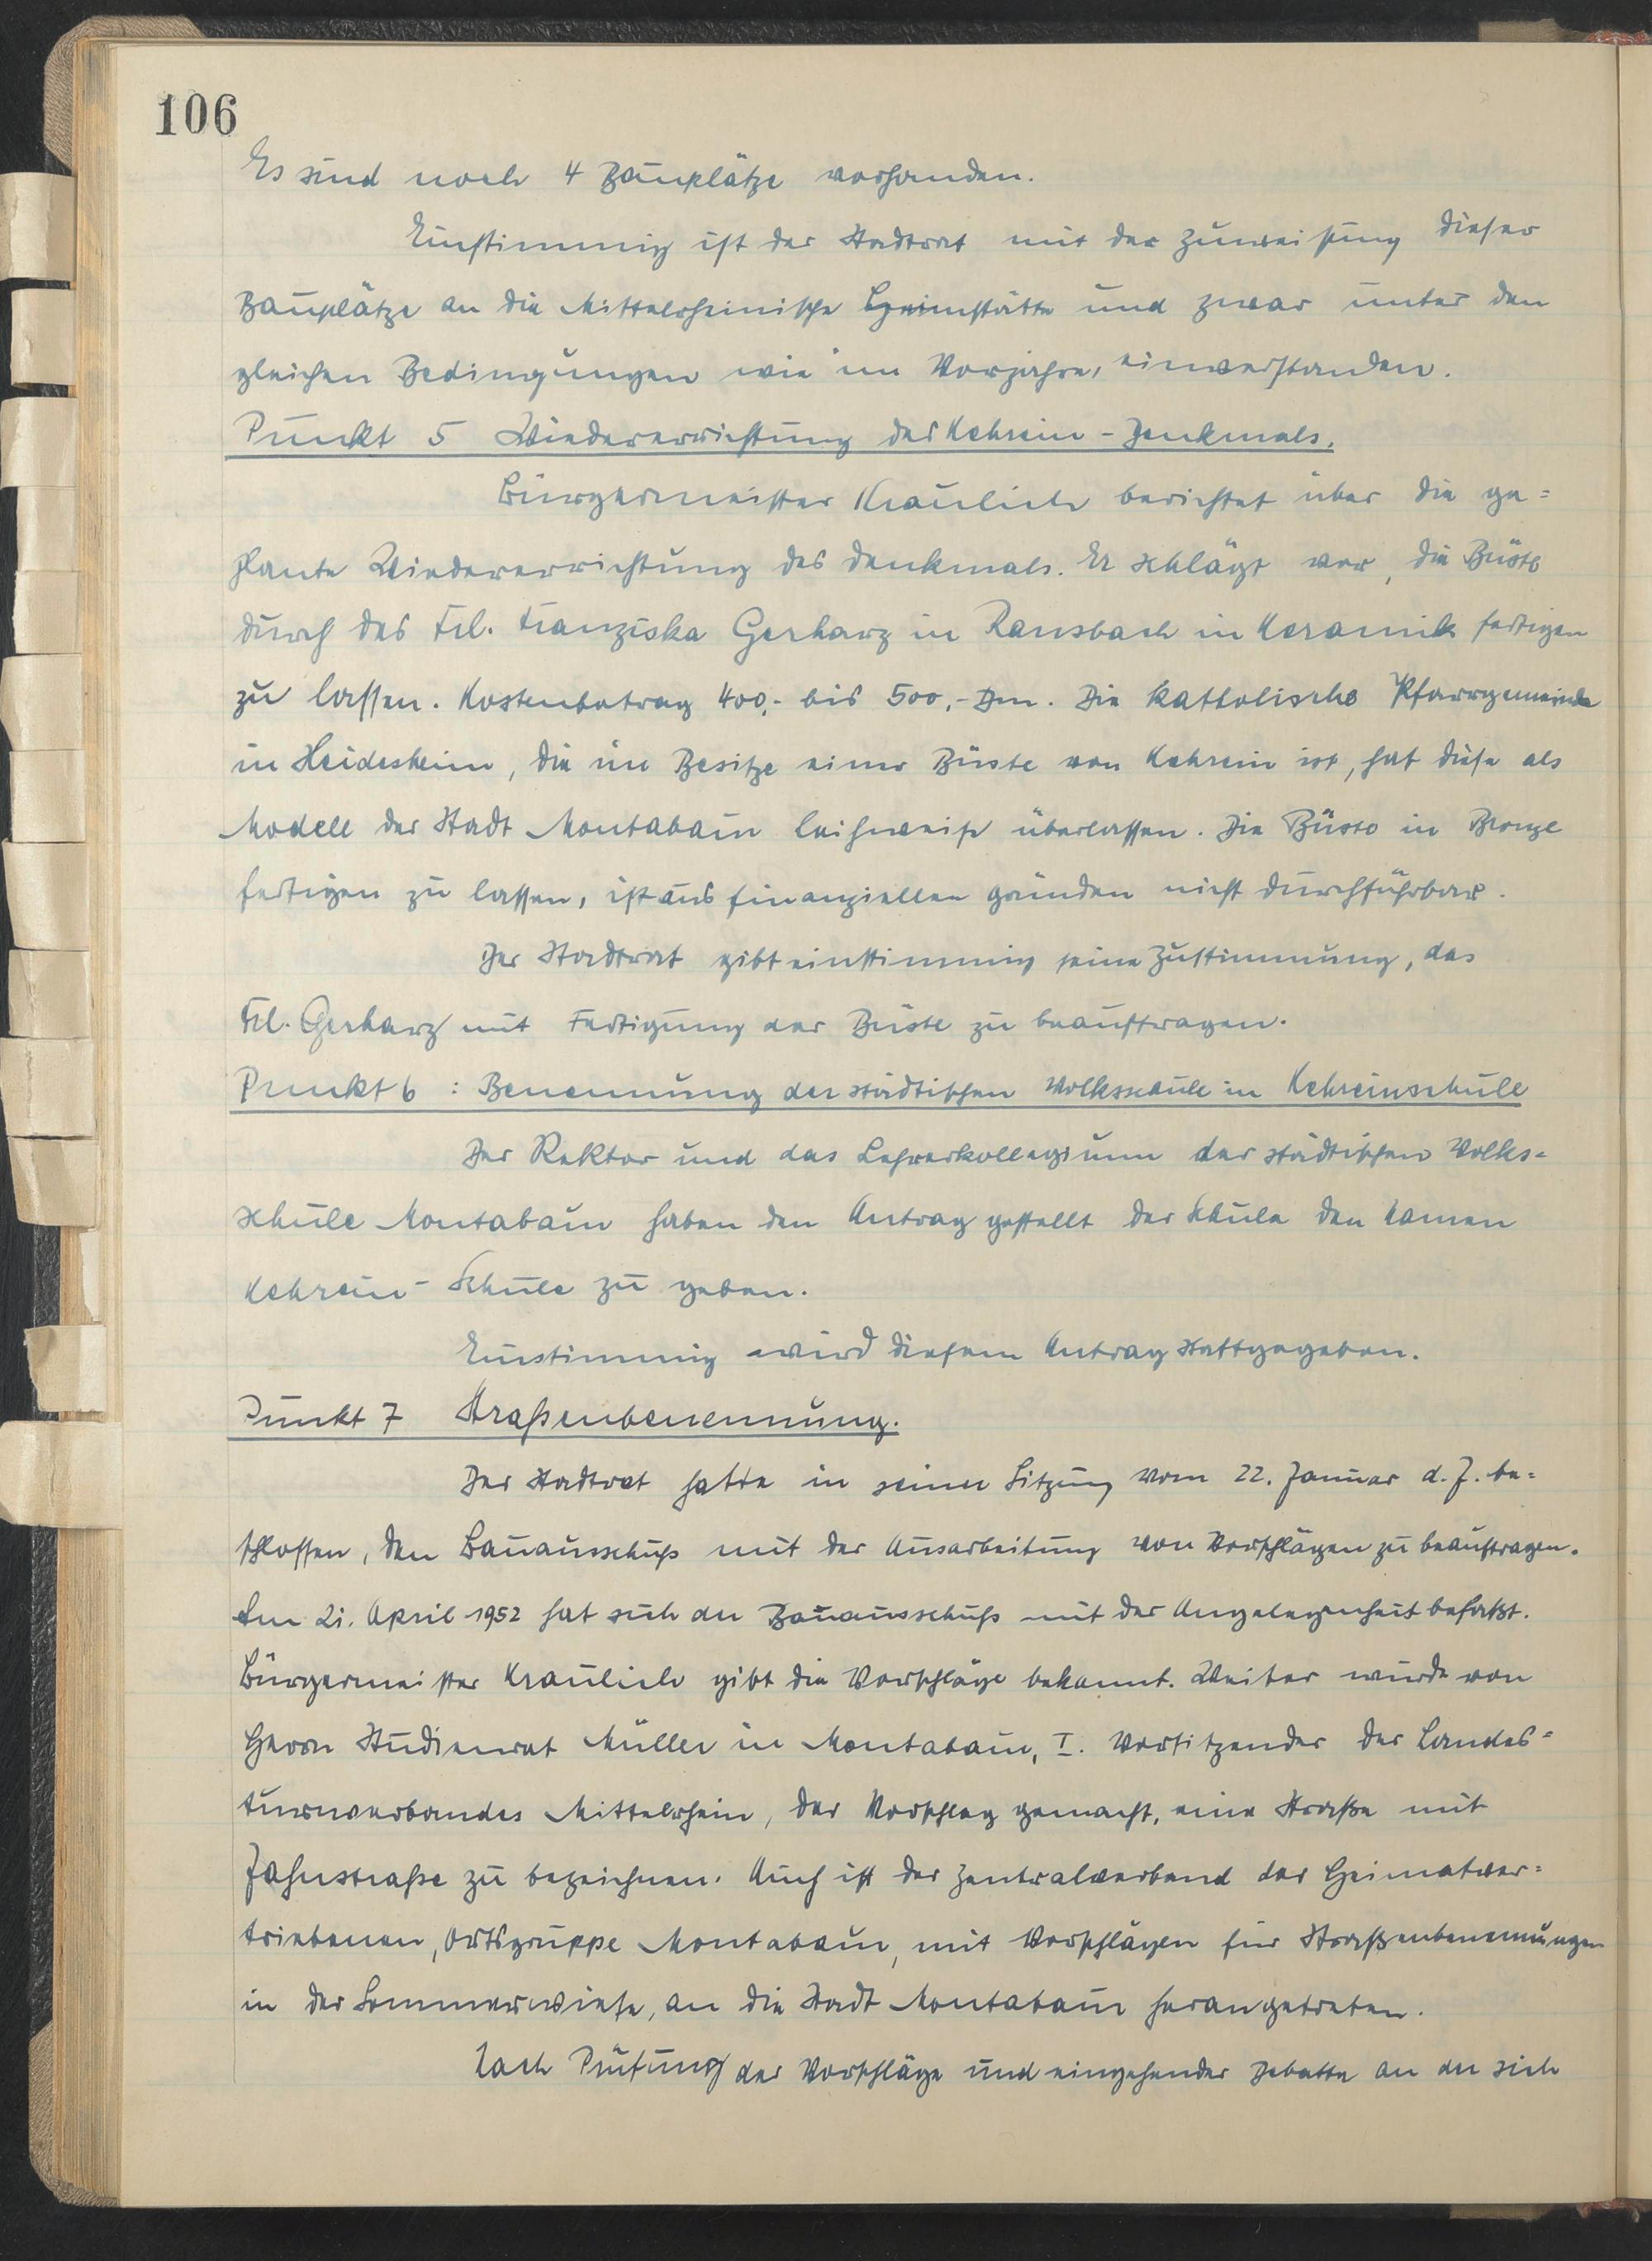 106
Es sind noch 4 Bauplätze vorhanden.
Einstimmig ist der Stadtrat mit der Zuweisung dieser
Bauplätze an die Mittelrheinische Heimstätte und zwar unter den
gleichen Bedingungen wie im Vorjahre, einverstanden.
Punkt 5 Wiedererrichtung des Kehrein-Denkmals.
Bürgermeister Kraulich berichtet über die ge=
plante Wiedererrichtung des Denkmals. Er schlägt vor, die Büste
durch das Frl. Franziska Gerharz in Ransbach in Keramik fertigen
zu lassen. Kostenbetrag 400,- bis 500,- Dm. Die katholische Pfarrgemeinde
in Heidesheim, die im Besitze einer Büste von Kehrein ist, hat diese als
Modell der Stadt Montabaur leihweise überlassen. Die Büste in Bronze
fertigen zu lassen, ist aus finanziellen Gründen nicht durchführbar.
Der Stadtrat gibt einstimmig seine Zustimmung, das
Frl. Gerharz mit Fertigung der Büste zu beauftragen.
Punkt 6 : Benennung der städtischen Volksschule in Kehreinschule
Der Rektor und das Lehrerkollegium der städtischen Volks=
schule Montabaur haben den Antrag gestellt der Schule den Namen
Kehrein-Schule zu geben.
Einstimmig wird diesem Antrag stattgegeben.
Punkt 7 Straßenbenennung.
Der Stadtrat hatte in seiner Sitzung vom 22. Januar d. J. be=
schlossen, den Bauausschuß mit der Ausarbeitung von Vorschlägen zu beauftragen.
Am 21. April 1952 hat sich der Bauausschuß mit der Angelegenheit befaßt.
Bürgermeister Kraulich gibt die Vorschläge bekannt. Weiter wurde von
Herrn Studienrat Müller in Montabaur, I. Vorsitzender des Landes=
turnverbandes Mittelrhein, der Vorschlag gemacht, eine Straße mit
Jahnstraße zu bezeichnen. Auch ist der Zentralverband der Heimatver=
triebenen, Ortsgruppe Montabaur, mit Vorschlägen für Straßenbenennungen
in der Sommerwiese, an die Stadt Montabaur herangetreten.
Nach Prüfung der Vorschläge und eingehender Debatte an der sich